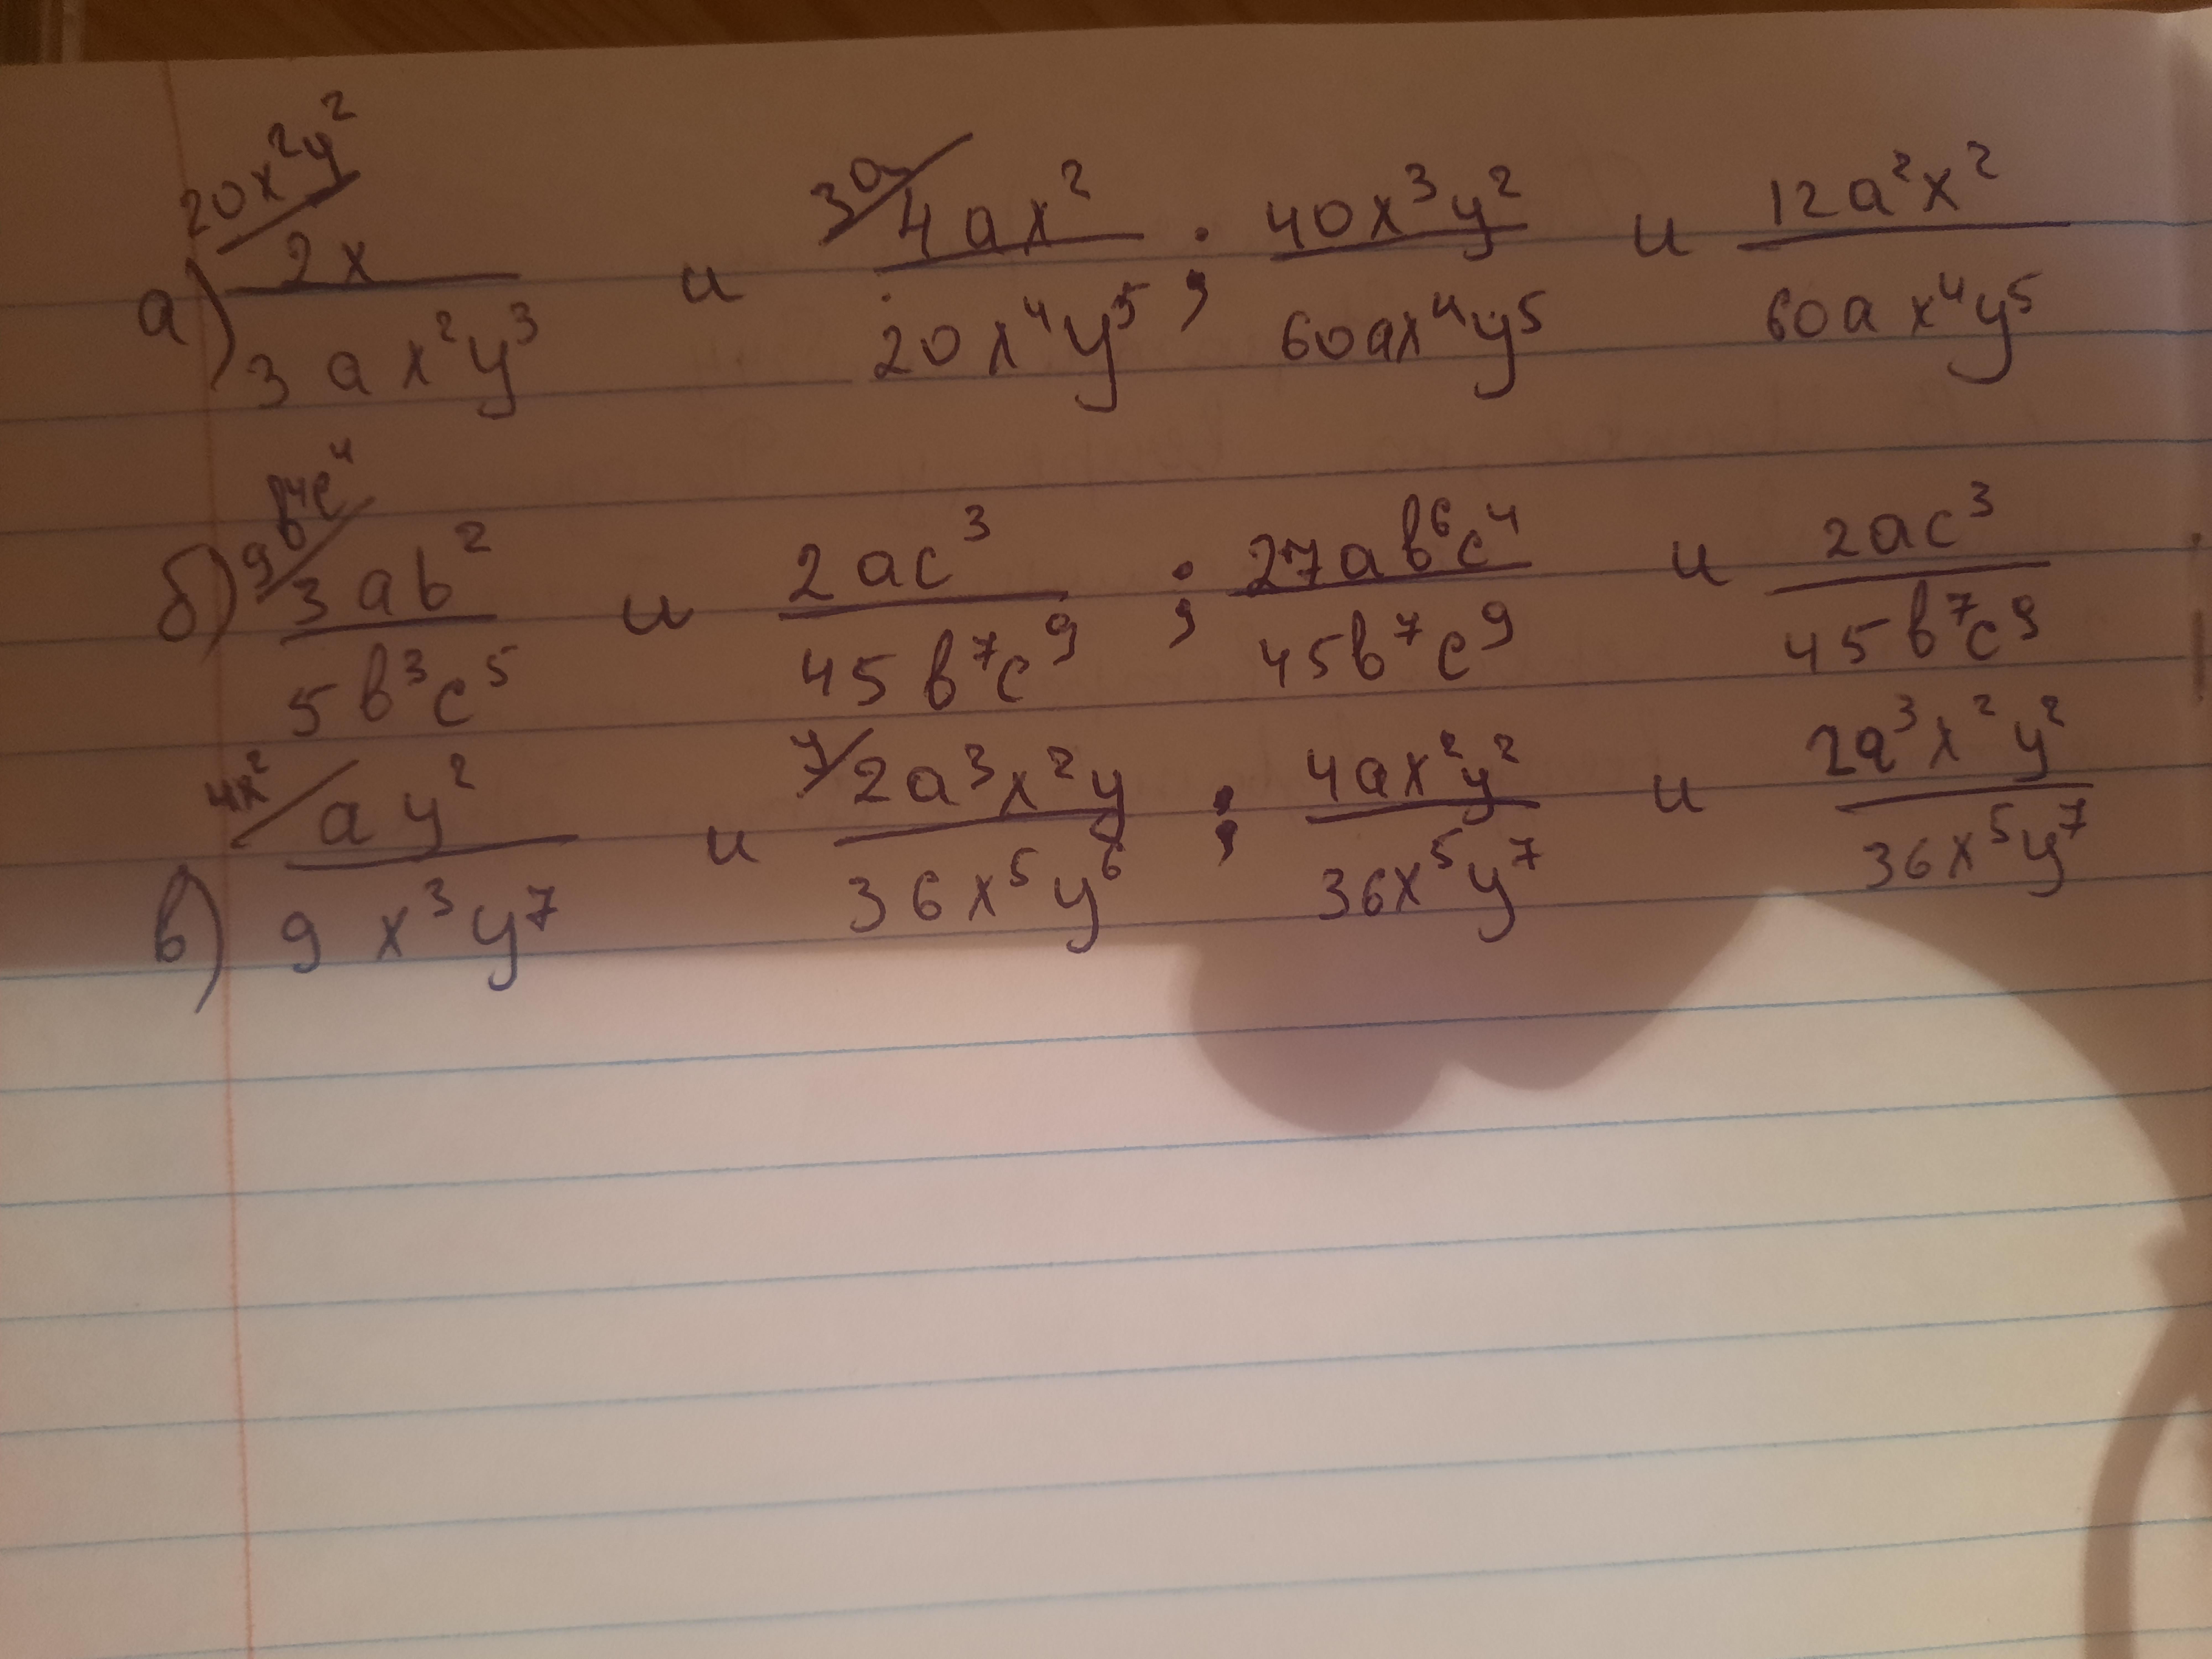 а) 20x²y²/ 2x / 3ax²y³ и 3a/ 4ax² / 20x⁴y⁵ ; 40x³y² / 60ax⁴y⁵ и 12a²x² / 60ax⁴y⁵
б) 9b⁴c⁴/ 3ab² / 5b³c⁵ и 2ac³ / 45b⁷c⁹ ; 27ab⁶c⁴ / 45b⁷c⁹ и 2ac³ / 45b⁷c⁹
в) 4x²/ ay² / 9x³y⁷ и y/ 2a³x²y / 36x⁵y⁶ ; 4ax²y² / 36x⁵y⁷ и 2a³x²y² / 36x⁵y⁷